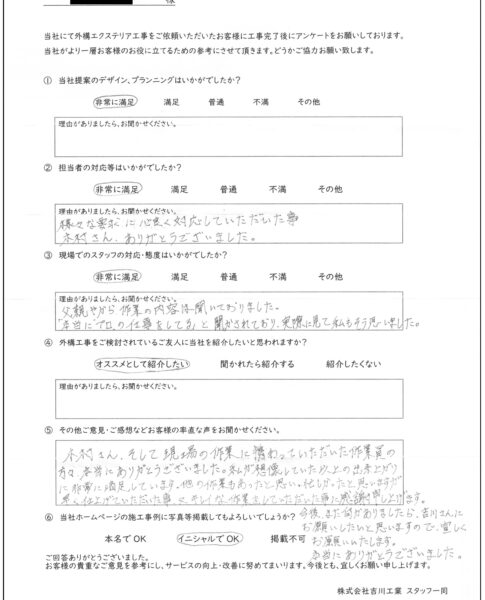 様
当社にて外構エクステリア工事をご依頼いただいたお客様に工事完了後にアンケートをお願いしております。
当社がより一層お客様のお役に立てるための参考にさせて頂きます。どうかご協力お願い致します。
① 当社提案のデザイン、プランニングはいかがでしたか?
非常に満足 満足 普通 不満 その他
理由がありましたら、お聞かせください。
② 担当者の対応等はいかがでしたか?
非常に満足 満足 普通 不満 その他
理由がありましたら、お聞かせください。
様々な要求に心良く対応していただいた事
木村さん、ありがとうございました。
③ 現場でのスタッフの対応・態度はいかがでしたか?
非常に満足 満足 普通 不満 その他
理由がありましたら、お聞かせください。
父親から作業の内容は聞いておりました。
「本当にプロの仕事をしてる」と聞かされており、実際に見て私もそう思いました。
④ 外構工事をご検討されているご友人に当社を紹介したいと思われますか?
オススメとして紹介したい 聞かれたら紹介する 紹介したくない
理由がありましたら、お聞かせください。
⑤ その他ご意見・ご感想などお客様の率直な声をお聞かせください。
木村さん、そして現場の作業に携わっていただいた作業員の
方々、本当にありがとうございました。私が想像していた以上の出来上がり
に非常に満足しています。他の作業もあったと思い、忙しかったと思いますが
早く仕上げていただいた事、キレイな作業をしていただいた事に感謝申し上げます。
今後、また何かありましたら、吉川さんに
お願いしたいと思いますので、宜しく
お願いいたします。
本当にありがとうございました。
⑥ 当社ホームページの施工事例に写真等掲載してもよろしいでしょうか?
本名で OK イニシャルで OK 掲載不可
ご回答ありがとうございました。
お客様の貴重なご意見を参考にし、サービスの向上・改善に努めてまいります。今後とも、宜しくお願い申し上げます。
株式会社吉川工業 スタッフ一同